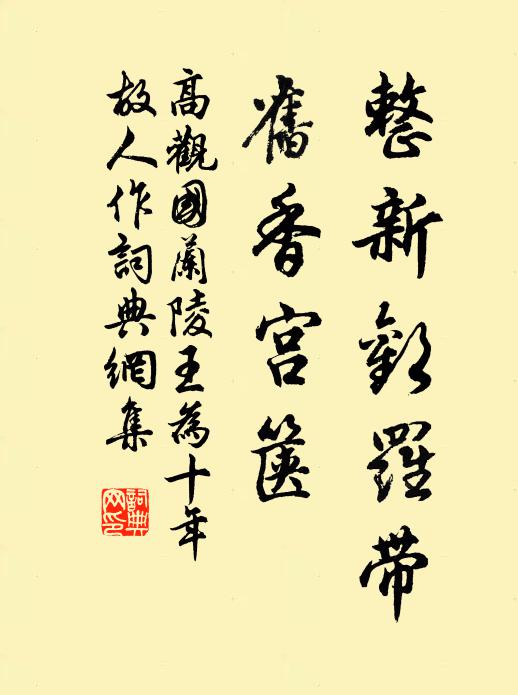 整新歡羅帶
舊香宮篋
高觀國蘭陵王為十年
故人作詞典網集
詞典網印